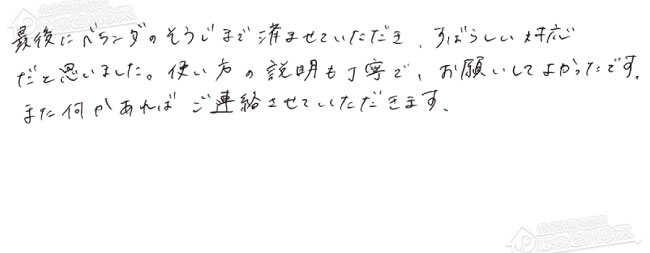 最後にベランダのそうじまで済ませていただき、すばらしい対応
だと思いました。使い方の説明も丁寧で、お願いしてよかったです。
また何かあればご連絡させていただきます。